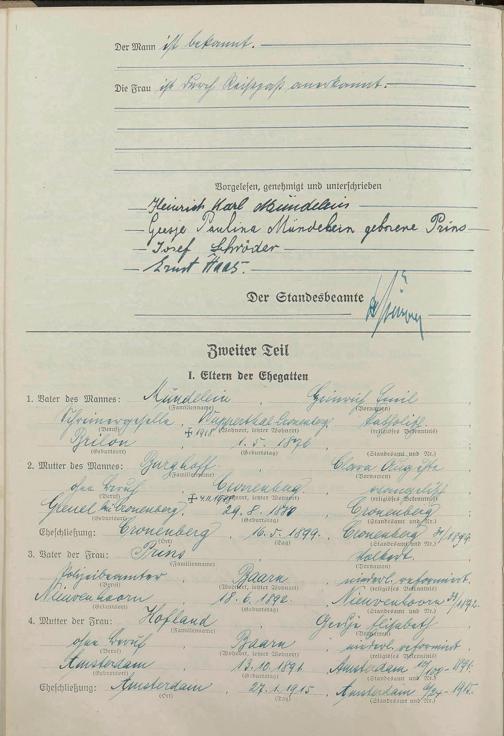 Der Mann ist bekannt.
Die Frau ist durch Reisepaß anerkannt.
Vorgelesen, genehmigt und unterschrieben
Heinrich Karl Mündelein
Geesje Paulina Mündelein geborene Prins
Josef Schröder
Ernst Haas.
Der Standesbeamte
Zweiter Teil
I. Eltern der Ehegatten
1. Vater des Mannes: Mündelein, Heinrich Emil
(Familienname) (Vornamen)
Schreinergeselle, Wuppertal-Cronenberg, katholisch
(Beruf) (Wohnort, letzter Wohnort) (religiöses Bekenntnis)
Brilon 1.5.1876
(Geburtsort) (Geburtstag) (Standesamt und Nr.)
2. Mutter des Mannes: Burghoff Clara Auguste
(Familienname) (Vornamen)
ohne Beruf Cronenberg evangelisch
(Beruf) (Wohnort, letzter Wohnort) (religiöses Bekenntnis)
bei Cronenberg. 29.8. Cronenberg
(Geburtsort) (Geburtstag) (Standesamt und Nr.)
Eheschließung: Cronenberg 16.5.1899. Cronenberg 1899
(Ort) (Tag) (Standesamt und Nr.)
3. Vater der Frau: Prins
(Familienname) (Vornamen)
Polizeibeamter Baarn niederl. reformiert.
(Beruf) (Wohnort, letzter Wohnort) (religiöses Bekenntnis)
Nieuwenhoorn 18.6.1892. Nieuwenhoorn 1892.
(Geburtsort) (Geburtstag) (Standesamt und Nr.)
4. Mutter der Frau: Hofland Geesje Elisabeth
(Familienname) (Vornamen)
ohne Beruf Baarn niederl. reformiert.
(Beruf) (Wohnort, letzter Wohnort) (religiöses Bekenntnis)
Amsterdam 13.10.1891. Amsterdam 1891.
(Geburtsort) (Geburtstag) (Standesamt und Nr.)
Eheschließung: Amsterdam 27.1.1915. Amsterdam 1915.
(Ort) (Tag) (Standesamt und Nr.)